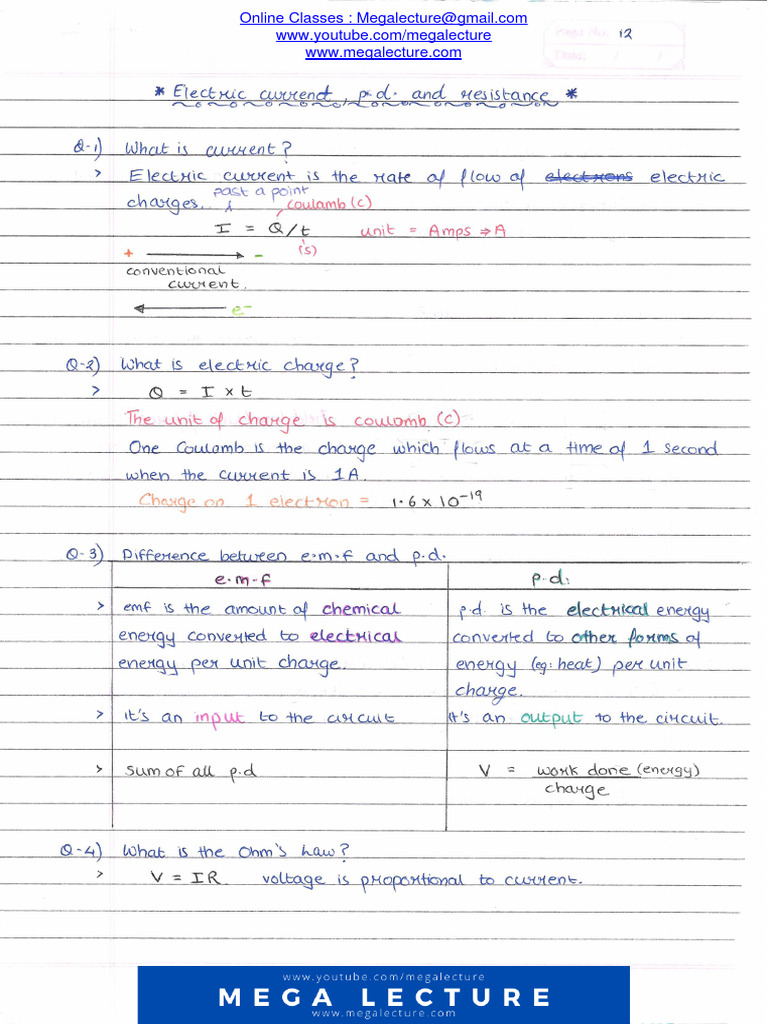 Online Classes : Megalecture@gmail.com
www.youtube.com/megalecture
www.megalecture.com
Page No: 12
Date: / /
* Electric current, p.d. and resistance *
Q-1) What is current?
> Electric current is the rate of flow of electrons electric
charges. past a point
coulamb (c)
I = Q/t unit = Amps ⇒ A
(s)
+ → -
conventional
current.
← e⁻
Q-2) What is electric charge?
> Q = I × t
The unit of charge is coulomb (C)
One Coulomb is the charge which flows at a time of 1 second
when the current is 1A.
Charge on 1 electron = 1.6 × 10⁻¹⁹
Q-3) Difference between e.m.f and p.d.
e.m.f p.d:
> emf is the amount of chemical p.d. is the electrical energy
energy converted to electrical converted to other forms of
energy per unit charge. energy (eg: heat) per unit
charge.
> It's an input to the circuit It's an output to the circuit.
> sum of all p.d V = work done (energy)
charge
Q-4) What is the Ohm's Law?
> V = IR voltage is proportional to current.
www.youtube.com/megalecture
MEGA LECTURE
www.megalecture.com